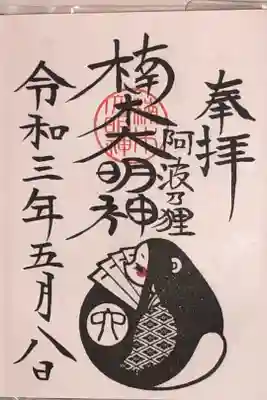 奉拝
阿波乃狸
楠森明神
令和三年五月八日